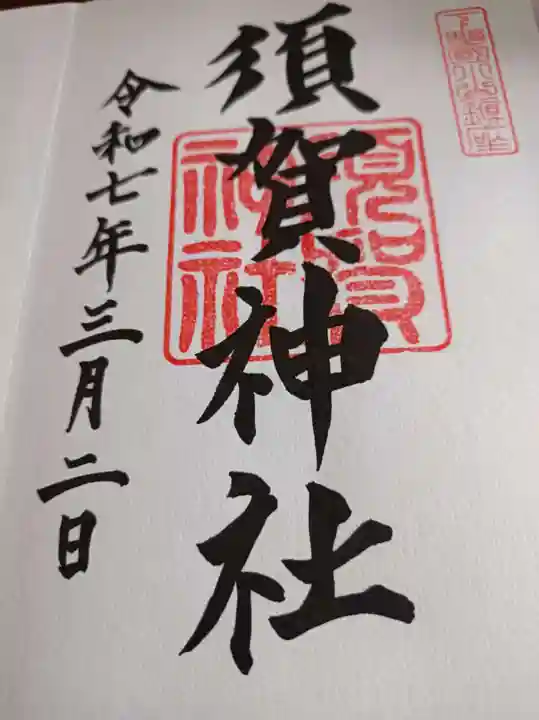 須賀神社
須賀
神社
令和七年三月二日